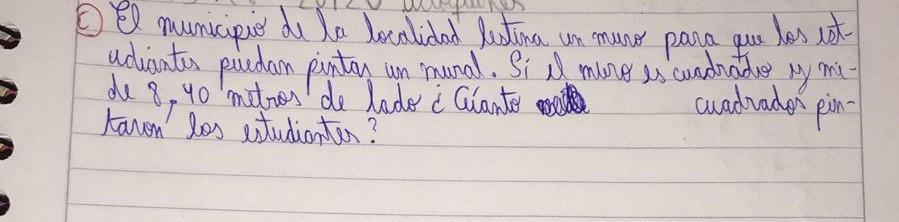 C) El municipio de la localidad destina un muro para que los est-
udiantes puedan pintar un mural. Si el muro es cuadrado y mi-
de 8,40 metros de lado ¿ Cúanto cuadrados pin-
taron los estudiantes?